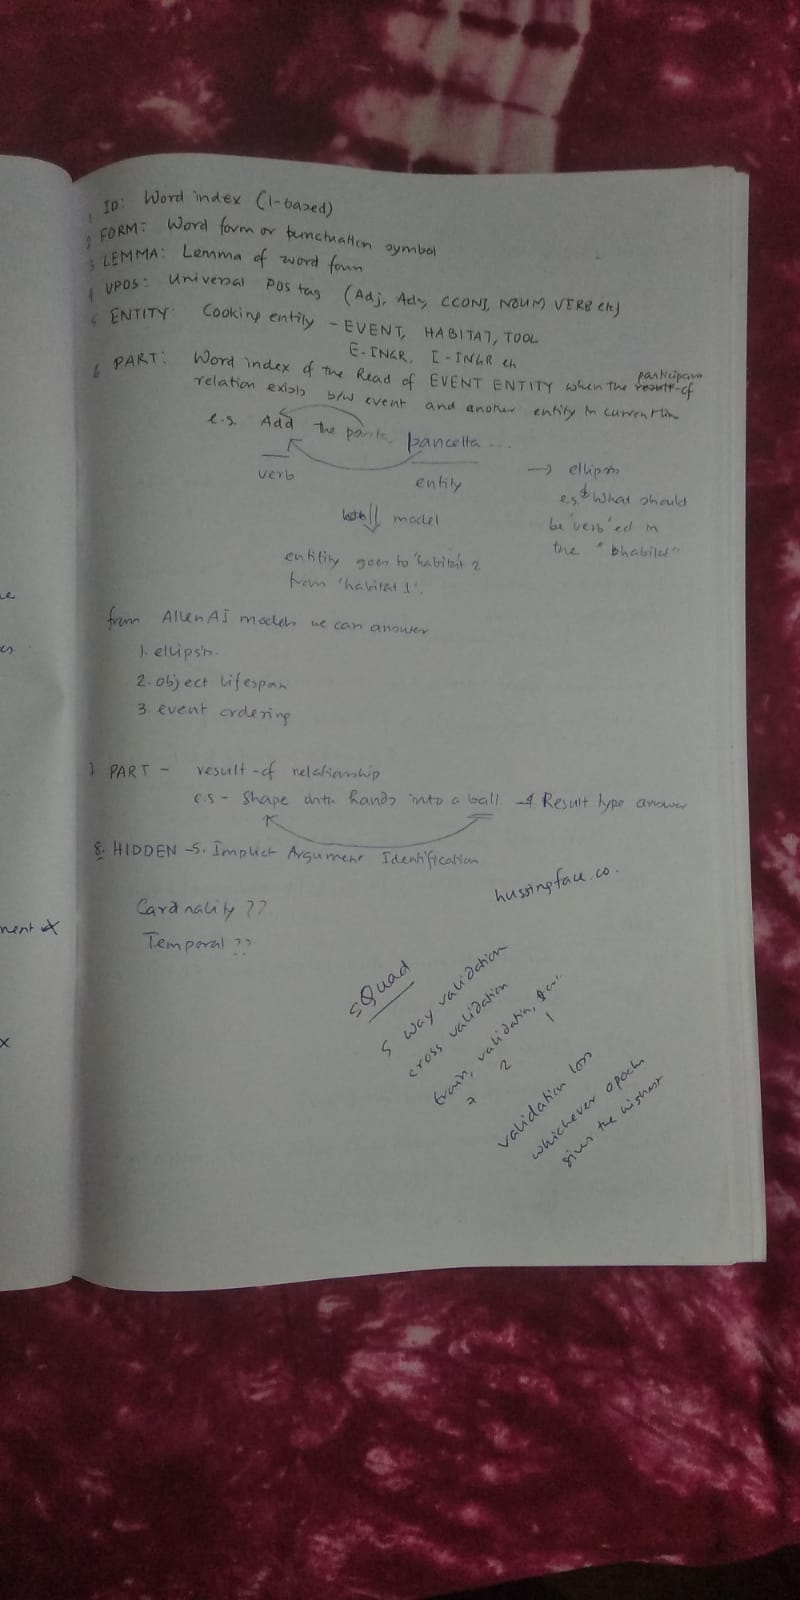 1 ID: Word index (1-based)
2 FORM: Word form or punctuation symbol
3 LEMMA: Lemma of word form
4 UPOS: Universal POS tag (Adj, Adv, CCONJ, NOUM VERB etc)
5 ENTITY: Cooking entity - EVENT, HABITAT, TOOL
E-INGR, I-INGR etc
participant
6 PART: Word index of the Read of EVENT ENTITY when the result-of
relation exists b/w event and another entity in current line
e.g. Add the pancetta ...
verb entity
→ ellipsis
e.g. What should
be 'verb'ed in
the "habitat"
model
entitiy goes to 'habitat 2
from 'habitat 1'.
from AllenAI models we can answer
1. ellipsis.
2. object lifespan
3. event ordering
7 PART - result-of relationship
e.g - Shape with hands into a ball → Result type answer
8. HIDDEN - 5. Implict Argument Identification
huggingface.co.
Cardnality ??
Temporal ??
ment x
x
SQuad
5 way validation
cross validation
train, validation,
7 2 1
validation loss
whichever epoch
gives the highest